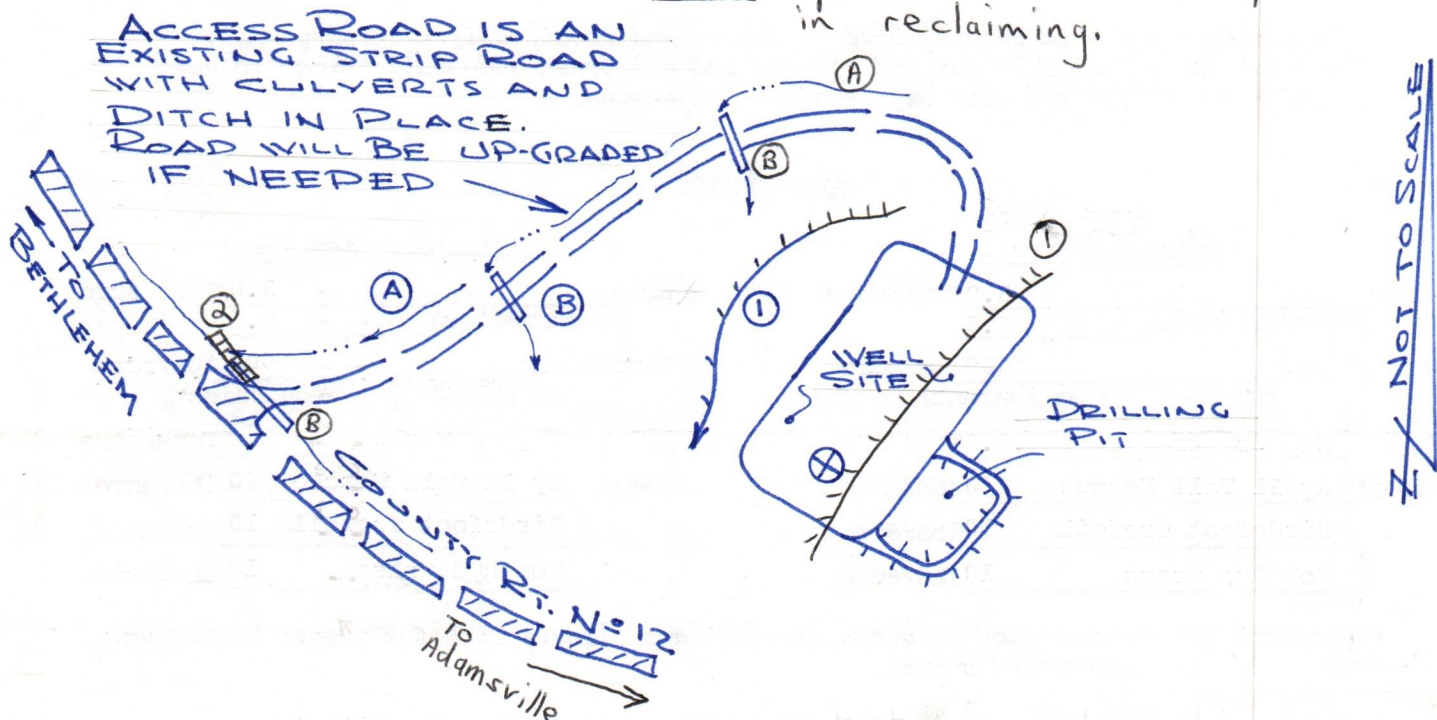 in reclaiming.
ACCESS ROAD IS AN
EXISTING STRIP ROAD
WITH CULVERTS AND
DITCH IN PLACE.
ROAD WILL BE UP-GRADED
IF NEEDED
A
B
1
NOT TO SCALE
N
TO
BETHLEHEM
2
A
B
1
WELL
SITE
DRILLING
PIT
B
COUNTY RT. No 12
TO
Adamsville